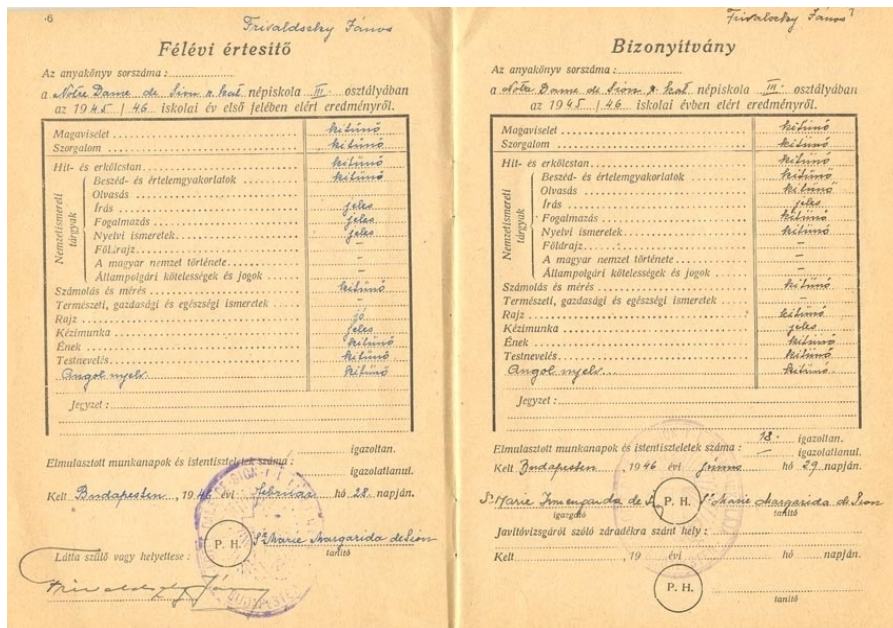 6
Frivaldszky János
Félévi értesítő
Az anyakönyv sorszáma :
a Notre Dame de Sion r. kat. népiskola III. osztályában
az 1945 / 46 iskolai év első felében elért eredményről.
Magaviselet kitünő
Szorgalom kitünő
Hit- és erkölcstan kitünő
Nemzetismereti tárgyak
Beszéd- és értelemgyakorlatok kitünő
Olvasás
Írás jeles
Fogalmazás jeles
Nyelvi ismeretek jeles
Földrajz –
A magyar nemzet története –
Állampolgári kötelességek és jogok –
Számolás és mérés kitünő
Természeti, gazdasági és egészségi ismeretek –
Rajz jó
Kézimunka jeles
Ének kitünő
Testnevelés kitünő
Angol nyelv. kitünő
Jegyzet :
Elmulasztott munkanapok és istentiszteletek száma : igazoltan.
igazolatlanul.
Kelt Budapesten, 1946 évi február hó 28. napján.
P. H.
Sr Marie Margarida de Sion
tanító
Látta szülő vagy helyettese :
Frivaldszky János
Frivaldszky János
7
Bizonyítvány
Az anyakönyv sorszáma :
a Notre Dame de Sion r. kat. népiskola III. osztályában
az 1945 / 46 iskolai évben elért eredményről.
Magaviselet kitünő
Szorgalom kitünő
Hit- és erkölcstan kitünő
Nemzetismereti tárgyak
Beszéd- és értelemgyakorlatok kitünő
Olvasás kitünő
Írás jeles
Fogalmazás kitünő
Nyelvi ismeretek kitünő
Földrajz –
A magyar nemzet története –
Állampolgári kötelességek és jogok –
Számolás és mérés kitünő
Természeti, gazdasági és egészségi ismeretek –
Rajz kitünő
Kézimunka jeles
Ének kitünő
Testnevelés kitünő
Angol nyelv. kitünő
Jegyzet :
Elmulasztott munkanapok és istentiszteletek száma : 18. igazoltan.
– igazolatlanul.
Kelt Budapesten, 1946 évi június hó 29 napján.
Sr Marie Irmengarda de S
igazgató
P. H.
Sr Marie Margarida de Sion
tanító
Javítóvizsgáról szóló záradékra szánt hely :
Kelt 19 évi hó napján.
P. H.
tanító